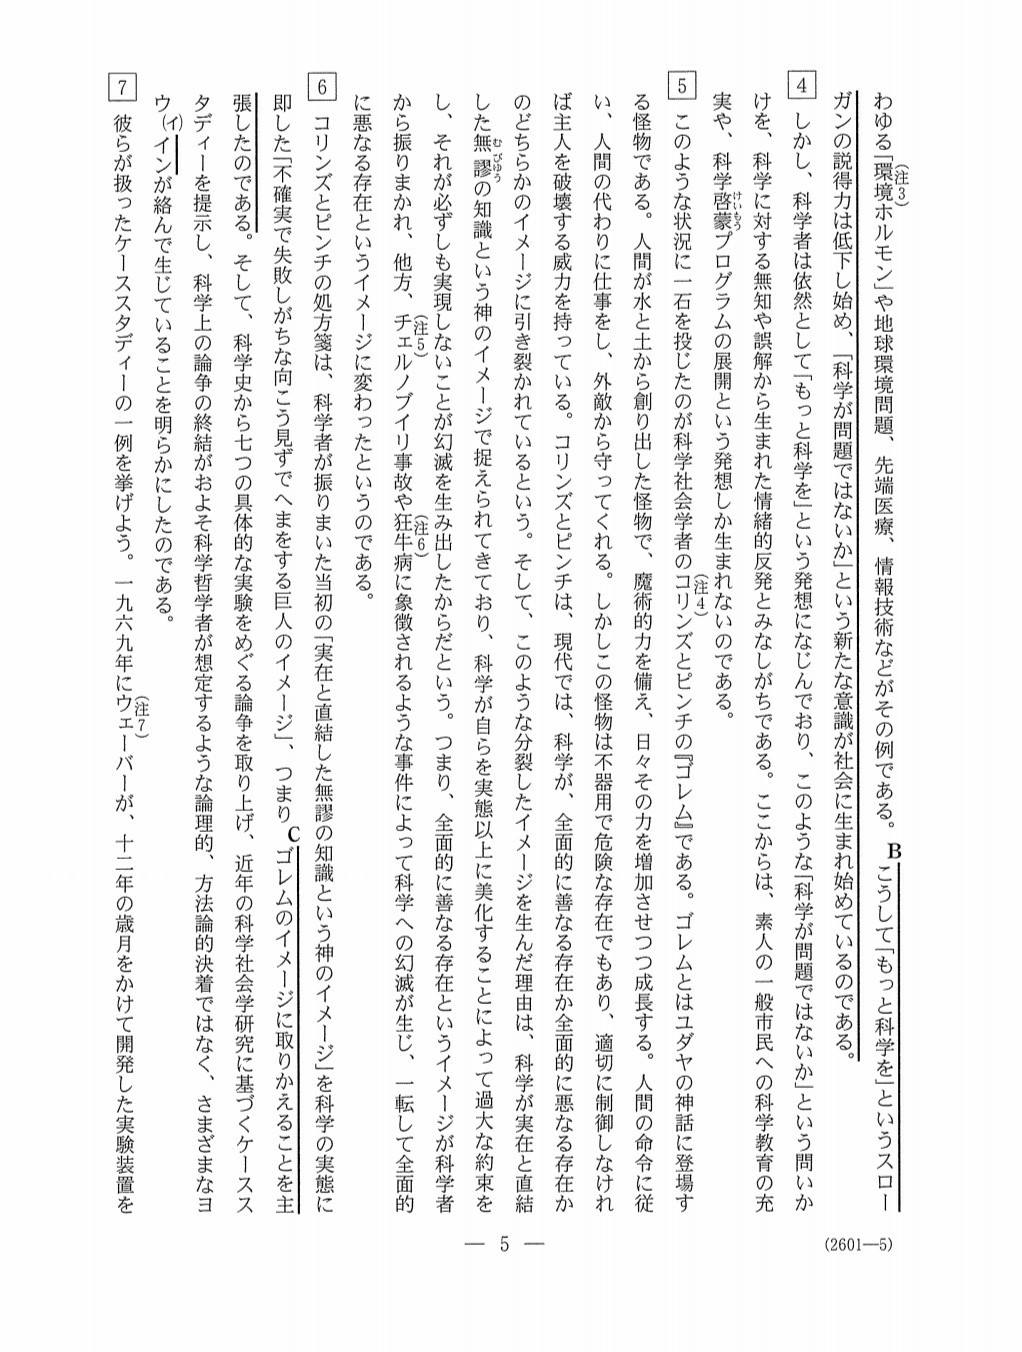 (注3)
わゆる「環境ホルモン」や地球環境問題、先端医療、情報技術などがその例である。Bこうして「もっと科学を」というスロー
ガンの説得力は低下し始め、「科学が問題ではないか」という新たな意識が社会に生まれ始めているのである。
4 しかし、科学者は依然として「もっと科学を」という発想になじんでおり、このような「科学が問題ではないか」という問いか
けを、科学に対する無知や誤解から生まれた情緒的反発とみなしがちである。ここからは、素人の一般市民への科学教育の充
けいもう
実や、科学啓蒙プログラムの展開という発想しか生まれないのである。
(注4)
5 このような状況に一石を投じたのが科学社会学者のコリンズとピンチの『ゴレム』である。ゴレムとはユダヤの神話に登場す
る怪物である。人間が水と土から創り出した怪物で、魔術的力を備え、日々その力を増加させつつ成長する。人間の命令に従
い、人間の代わりに仕事をし、外敵から守ってくれる。しかしこの怪物は不器用で危険な存在でもあり、適切に制御しなけれ
ば主人を破壊する威力を持っている。コリンズとピンチは、現代では、科学が、全面的に善なる存在か全面的に悪なる存在か
のどちらかのイメージに引き裂かれているという。そして、このような分裂したイメージを生んだ理由は、科学が実在と直結
むびゅう
した無謬の知識という神のイメージで捉えられてきており、科学が自らを実態以上に美化することによって過大な約束を
し、それが必ずしも実現しないことが幻滅を生み出したからだという。つまり、全面的に善なる存在というイメージが科学者
(注5)
(注6)
から振りまかれ、他方、チェルノブイリ事故や狂牛病に象徴されるような事件によって科学への幻滅が生じ、一転して全面的
に悪なる存在というイメージに変わったというのである。
6 コリンズとピンチの処方箋は、科学者が振りまいた当初の「実在と直結した無謬の知識という神のイメージ」を科学の実態に
即した「不確実で失敗しがちな向こう見ずでへまをする巨人のイメージ」、つまりCゴレムのイメージに取りかえることを主
張したのである。そして、科学史から七つの具体的な実験をめぐる論争を取り上げ、近年の科学社会学研究に基づくケースス
タディーを提示し、科学上の論争の終結がおよそ科学哲学者が想定するような論理的、方法論的決着ではなく、さまざまなヨ
ウ(イ)インが絡んで生じていることを明らかにしたのである。
(注7)
7 彼らが扱ったケーススタディーの一例を挙げよう。一九六九年にウェーバーが、十二年の歳月をかけて開発した実験装置を
— 5 —
(2601—5)